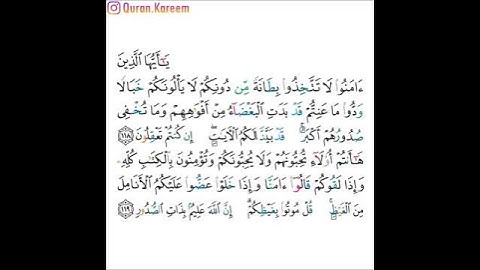 Quran.Kareem
يَـٰٓأَيُّهَا ٱلَّذِينَ
ءَامَنُوا۟ لَا تَتَّخِذُوا۟ بِطَانَةً مِّن دُونِكُمْ لَا يَأْلُونَكُمْ خَبَالًا
وَدُّوا۟ مَا عَنِتُّمْ قَدْ بَدَتِ ٱلْبَغْضَآءُ مِنْ أَفْوَٰهِهِمْ وَمَا تُخْفِى
صُدُورُهُمْ أَكْبَرُ ۚ قَدْ بَيَّنَّا لَكُمُ ٱلْـَٔايَـٰتِ ۖ إِن كُنتُمْ تَعْقِلُونَ ١١٨
هَـٰٓأَنتُمْ أُو۟لَآءِ تُحِبُّونَهُمْ وَلَا يُحِبُّونَكُمْ وَتُؤْمِنُونَ بِٱلْكِتَـٰبِ كُلِّهِۦ
وَإِذَا لَقُوكُمْ قَالُوٓا۟ ءَامَنَّا وَإِذَا خَلَوْا۟ عَضُّوا۟ عَلَيْكُمُ ٱلْأَنَامِلَ
مِنَ ٱلْغَيْظِ ۚ قُلْ مُوتُوا۟ بِغَيْظِكُمْ ۗ إِنَّ ٱللَّهَ عَلِيمٌۢ بِذَاتِ ٱلصُّدُورِ ١١٩